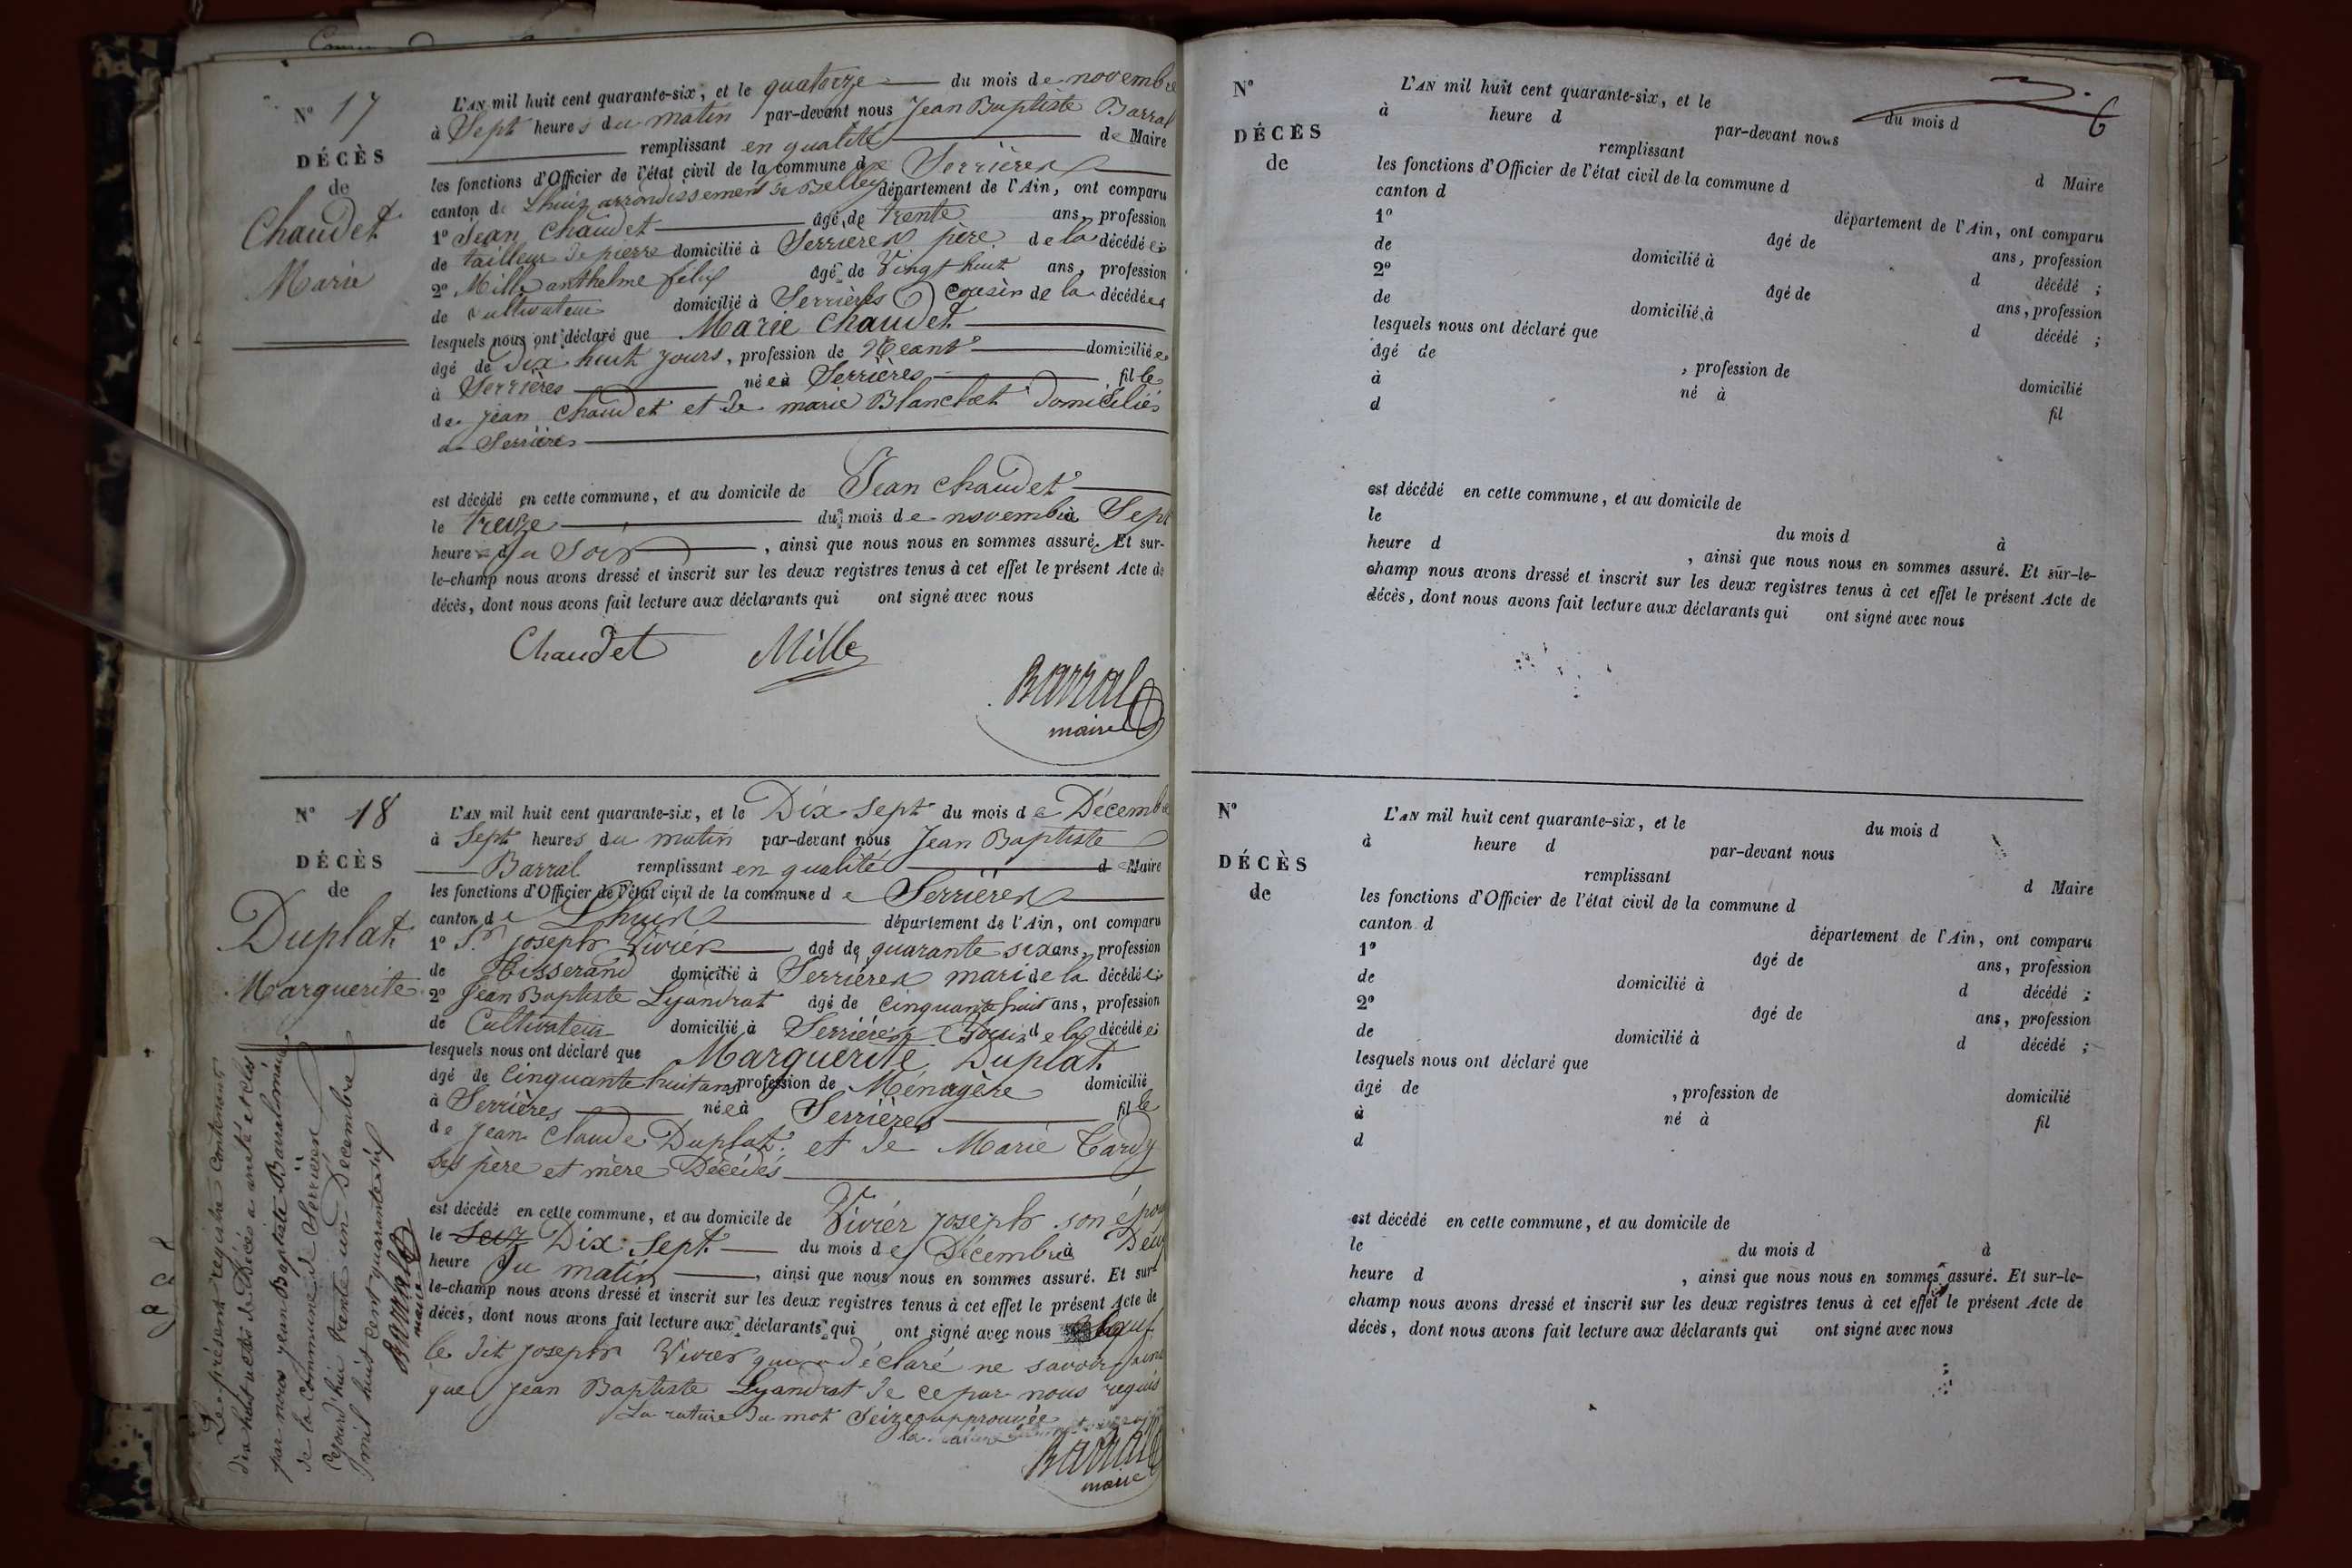 N° 17
DÉCÈS
de
Chaudet
Marie
L'AN mil huit cent quarante-six, et le quatorze du mois de novembre
à Sept heures du matin par-devant nous Jean Baptiste Barral
remplissant en qualité de Maire
les fonctions d'Officier de l'état civil de la commune de Serrières
canton de Lhuis arrondissement de Belley département de l'Ain, ont comparu
1° Jean Chaudet âgé de trente ans, profession
de tailleur de pierre domicilié à Serrières père de la décédée
2° Mille anthelme fils âgé de Vingt huit ans, profession
de Cultivateur domicilié à Serrières Cousin de la décédée
lesquels nous ont déclaré que Marie Chaudet
âgé de dix huit jours, profession de Néant domiciliée
à Serrières née à Serrières fille
de Jean Chaudet et de marie Blanchet domiciliés
a Serrières
est décédé en cette commune, et au domicile de Jean Chaudet
le treize du mois de novembre à Sept
heure du Soir, ainsi que nous nous en sommes assuré. Et sur-
le-champ nous avons dressé et inscrit sur les deux registres tenus à cet effet le présent Acte de
décès, dont nous avons fait lecture aux déclarants qui ont signé avec nous
Chaudet Mille
Barral
maire
N° 18
DÉCÈS
de
Duplat
Marguerite
L'AN mil huit cent quarante-six, et le Dix Sept du mois de Décembre
à Sept heures du matin par-devant nous Jean Baptiste
Barral remplissant en qualité de Maire
les fonctions d'Officier de l'état civil de la commune de Serrières
canton de Lhuis département de l'Ain, ont comparu
1° Sr joseph Vivier âgé de quarante six ans, profession
de Tisserand domicilié à Serrières mari de la décédée
2° Jean Baptiste Lyandrat âgé de cinquante huit ans, profession
de Cultivateur domicilié à Serrières de la décédée
lesquels nous ont déclaré que Marguerite Duplat
âgé de Cinquante huit ans profession de Ménagère domicilié
à Serrières née à Serrières fille
de Jean Claude Duplat et de Marie Tardy
ses père et mère Décédés
est décédé en cette commune, et au domicile de Vivier joseph son épou
le Seiz Dix Sept du mois de Décembre à Deux
heure du matin, ainsi que nous nous en sommes assuré. Et sur-
le-champ nous avons dressé et inscrit sur les deux registres tenus à cet effet le présent Acte de
décès, dont nous avons fait lecture aux déclarants qui ont signé avec nous
le dit joseph Vivier qui a déclaré ne savoir
que Jean Baptiste Lyandrat de ce par nous requis
La rature du mot Seize approuvée
Barral
maire
Le présent registre contenant
dix huit actes de Décès a arrêté et clos
par nous Jean Baptiste Barral maire
de la Commune de Serrières
Cejourd'hui trente un Décembre
mil huit cent quarante six
Barral
maire
6
N°
DÉCÈS
de
L'AN mil huit cent quarante-six, et le du mois d
à heure d par-devant nous
remplissant d Maire
les fonctions d'Officier de l'état civil de la commune d
canton d département de l'Ain, ont comparu
1° âgé de ans, profession
de domicilié à d décédé ;
2° âgé de ans, profession
de domicilié à d décédé ;
lesquels nous ont déclaré que
âgé de , profession de domicilié
à né à fil
d
est décédé en cette commune, et au domicile de
le du mois d à
heure d , ainsi que nous nous en sommes assuré. Et sur-le-
champ nous avons dressé et inscrit sur les deux registres tenus à cet effet le présent Acte de
décès, dont nous avons fait lecture aux déclarants qui ont signé avec nous
N°
DÉCÈS
de
L'AN mil huit cent quarante-six, et le du mois d
à heure d par-devant nous
remplissant d Maire
les fonctions d'Officier de l'état civil de la commune d
canton d département de l'Ain, ont comparu
1° âgé de ans, profession
de domicilié à d décédé ;
2° âgé de ans, profession
de domicilié à d décédé ;
lesquels nous ont déclaré que
âgé de , profession de domicilié
à né à fil
d
est décédé en cette commune, et au domicile de
le du mois d à
heure d , ainsi que nous nous en sommes assuré. Et sur-le-
champ nous avons dressé et inscrit sur les deux registres tenus à cet effet le présent Acte de
décès, dont nous avons fait lecture aux déclarants qui ont signé avec nous